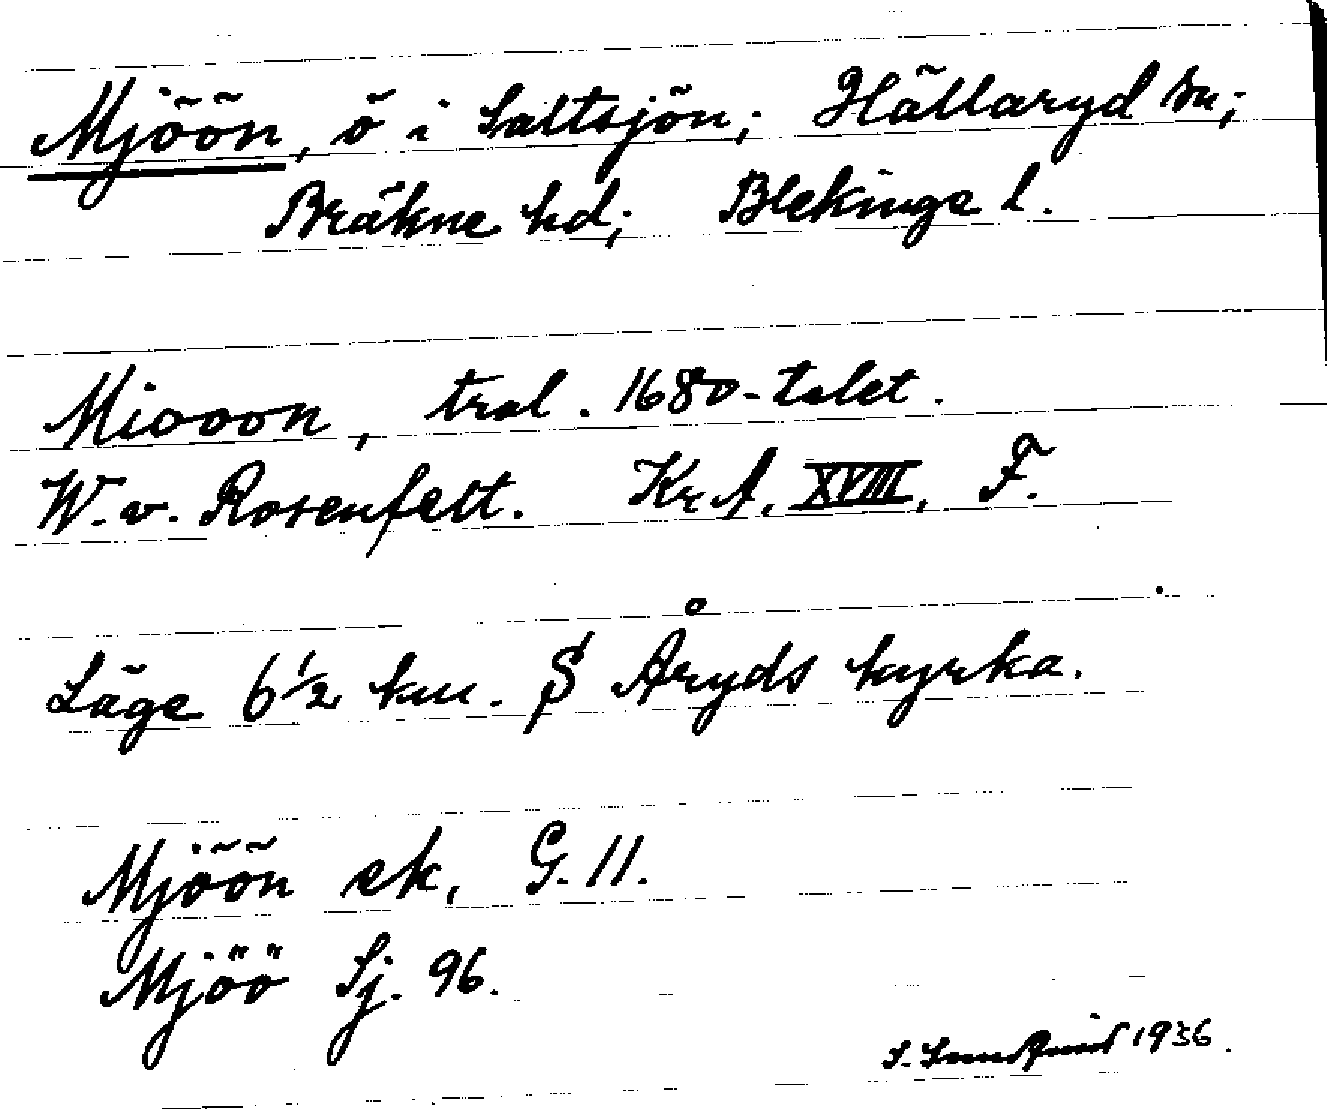 Mjöön, ö i Saltsjön; Hällaryd sn;
Bräkne hd; Blekinge l.
Miooon, trol. 1680-talet.
W. v. Rosenfelt. Kr. A. XVIII, F.
Läge 6 1/2 km. S Åryds kyrka.
Mjöön ek. G. 11.
Mjöö Sj. 96.
S. 1936.